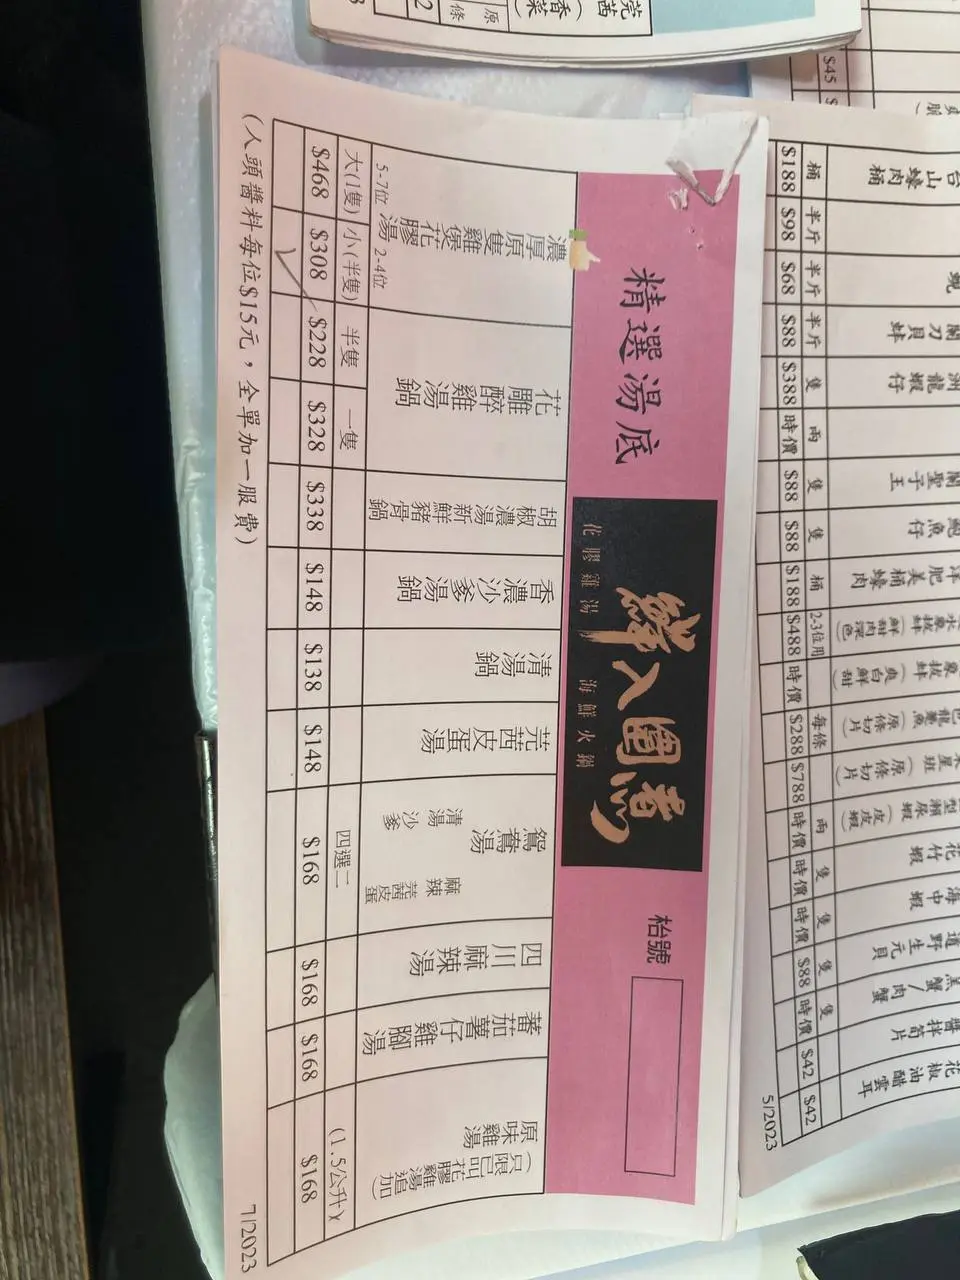 精選湯底
鮮入圍煮
花膠雞湯 海鮮火鍋
枱號
濃厚原隻雞煲花膠湯
5-7位 2-4位
大(1隻) 小(半隻)
$468 $308
花雕醉雞湯鍋
半隻 一隻
$228 $328
胡椒濃湯新鮮豬骨鍋
$338
香濃沙爹湯鍋
$148
清湯鍋
$138
芫茜皮蛋湯
$148
鴛鴦湯
清湯 麻辣
沙爹 芫茜皮蛋
四選二
$168
四川麻辣湯
$168
蕃茄薯仔雞腳湯
$168
原味雞湯
(只限已叫花膠雞湯追加)
(1.5/公升)
$168
(人頭醬料每位$15元，全單加一服費)
7/2023
芫茜
(香菜)
原條
$45
台山蠔肉桶
桶
$188
半斤
$98
蜆
半斤
$68
刀貝蚌
半斤
$88
洲龍蝦仔
隻
$388
兩
時價
聖子王
隻
$88
鮑魚仔
隻
$88
洋肥美桶蠔肉
桶
$188
2-3位用
$488
時價
每條
$288
$788
兩
時價
花竹蝦
隻
時價
海中蝦
隻
時價
野生元貝
隻
$88
蟹/肉蟹
隻
時價
醬拌筍片
$42
花椒油醋雲耳
$42
5/2023